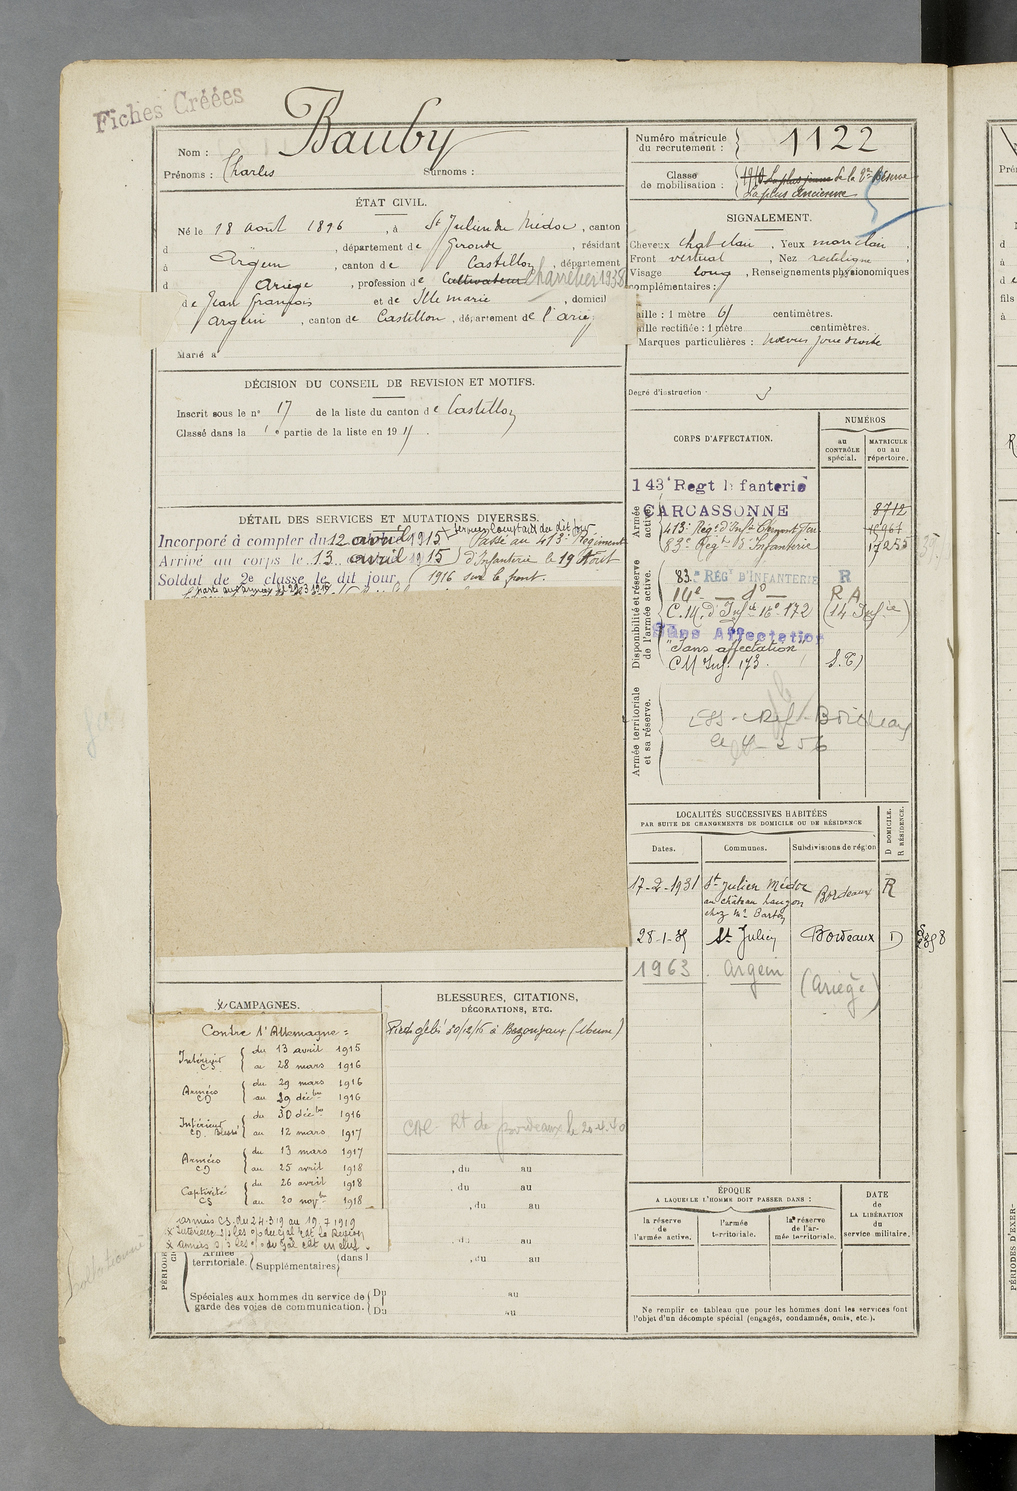 Fiches Créées
Nom : Bauby
Prénoms : Charles Surnoms :
Numéro matricule du recrutement : 1122
Classe de mobilisation : 1910 La plus jeune de la 2me Réserve
La plus Ancienne
ÉTAT CIVIL.
Né le 18 août 1896, à St Julien du Médoc, canton
d , département de Gironde, résidant
à Argein, canton de Castillon, département
d Ariège, profession de Cultivateur Charretier 1938
de Jean François et de Ille marie, domicil
Argein, canton de Castillon, département de l'arié
Marié à
SIGNALEMENT.
Cheveux chat clair, Yeux mar clair,
Front vertical, Nez rectiligne,
Visage long, Renseignements physionomiques
complémentaires :
aille : 1 mètre 61 centimètres.
aille rectifiée : 1 mètre centimètres.
Marques particulières : noevus joue droite
Degré d'instruction : 3
DÉCISION DU CONSEIL DE REVISION ET MOTIFS.
Inscrit sous le n° 17 de la liste du canton de Castillon
Classé dans la 1e partie de la liste en 19
CORPS D'AFFECTATION.
NUMÉROS
au CONTRÔLE spécial.
MATRICULE ou au répertoire.
Armée active.
143e Regt Infanterie
CARCASSONNE 8712
413e Régt d'Inft
83e Regt d'Infanterie 17255
Disponibilité et réserve de l'armée active.
83e RÉGt D'INFANTERIE R
14e — do — R A
C.M. d'Infie no 172 (14 Infie)
Sans Affectation
"Sans affectation"
CM Inf. 173. S.T)
Armée territoriale et sa réserve.
DÉTAIL DES SERVICES ET MUTATIONS DIVERSES.
Incorporé à compter du 12 avril 1915 Passé au 413e Régiment
Arrivé au corps le 13 avril 1915 d'Infanterie le 19 Août
Soldat de 2e classe le dit jour. 1916 sur le front.
LOCALITÉS SUCCESSIVES HABITÉES
PAR SUITE DE CHANGEMENTS DE DOMICILE OU DE RÉSIDENCE
D DOMICILE. R RÉSIDENCE.
Dates. Communes. Subdivisions de région
17-2-1931 St Julien Médoc Bordeaux R
au château Langoa
chez Mr Barton
28-1-35 St Julien Bordeaux D
1963 Argein (Ariège)
CAMPAGNES.
Contre l'Allemagne :
Intérieur CS du 13 avril 1915
au 28 mars 1916
Armées CD du 29 mars 1916
au 29 décbre 1916
Intérieur CD Blessé du 30 décbre 1916
au 12 mars 1917
Armées CD du 13 mars 1917
au 25 avril 1918
Captivité CS du 26 avril 1918
au 20 novbre 1918
armées CS. du 24.3.19 au 19.7.1919
BLESSURES, CITATIONS,
DÉCORATIONS, ETC.
Pieds gelés 30/12/16 à Bezonvaux (Meuse)
, du au
, du au
, du au
, du au
, du au
PÉRIODES
Armée territoriale. Supplémentaires dans l
Spéciales aux hommes du service de garde des voies de communication. Du au
Du au
ÉPOQUE
A LAQUELLE L'HOMME DOIT PASSER DANS :
la réserve de l'armée active.
l'armée territoriale.
la réserve de l'armée territoriale.
DATE de LA LIBÉRATION du service militaire.
Ne remplir ce tableau que pour les hommes dont les services font
l'objet d'un décompte spécial (engagés, condamnés, omis, etc.).
PÉRIODES D'EXER-